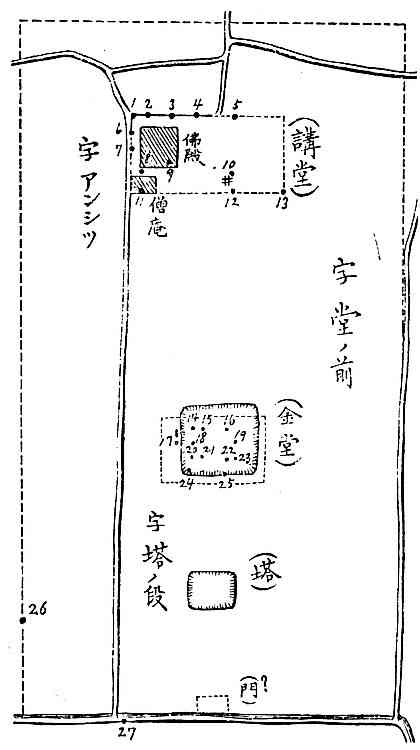 1 2 3 4 5
6
7
8 9
10
井
11 12 13
佛殿
僧庵
(講堂)
字 アンシツ
字 堂ノ前
14 15 16
17 18 19
20 21 22 23
24 25
(金堂)
字 塔ノ段
(塔)
26
(門?)
27